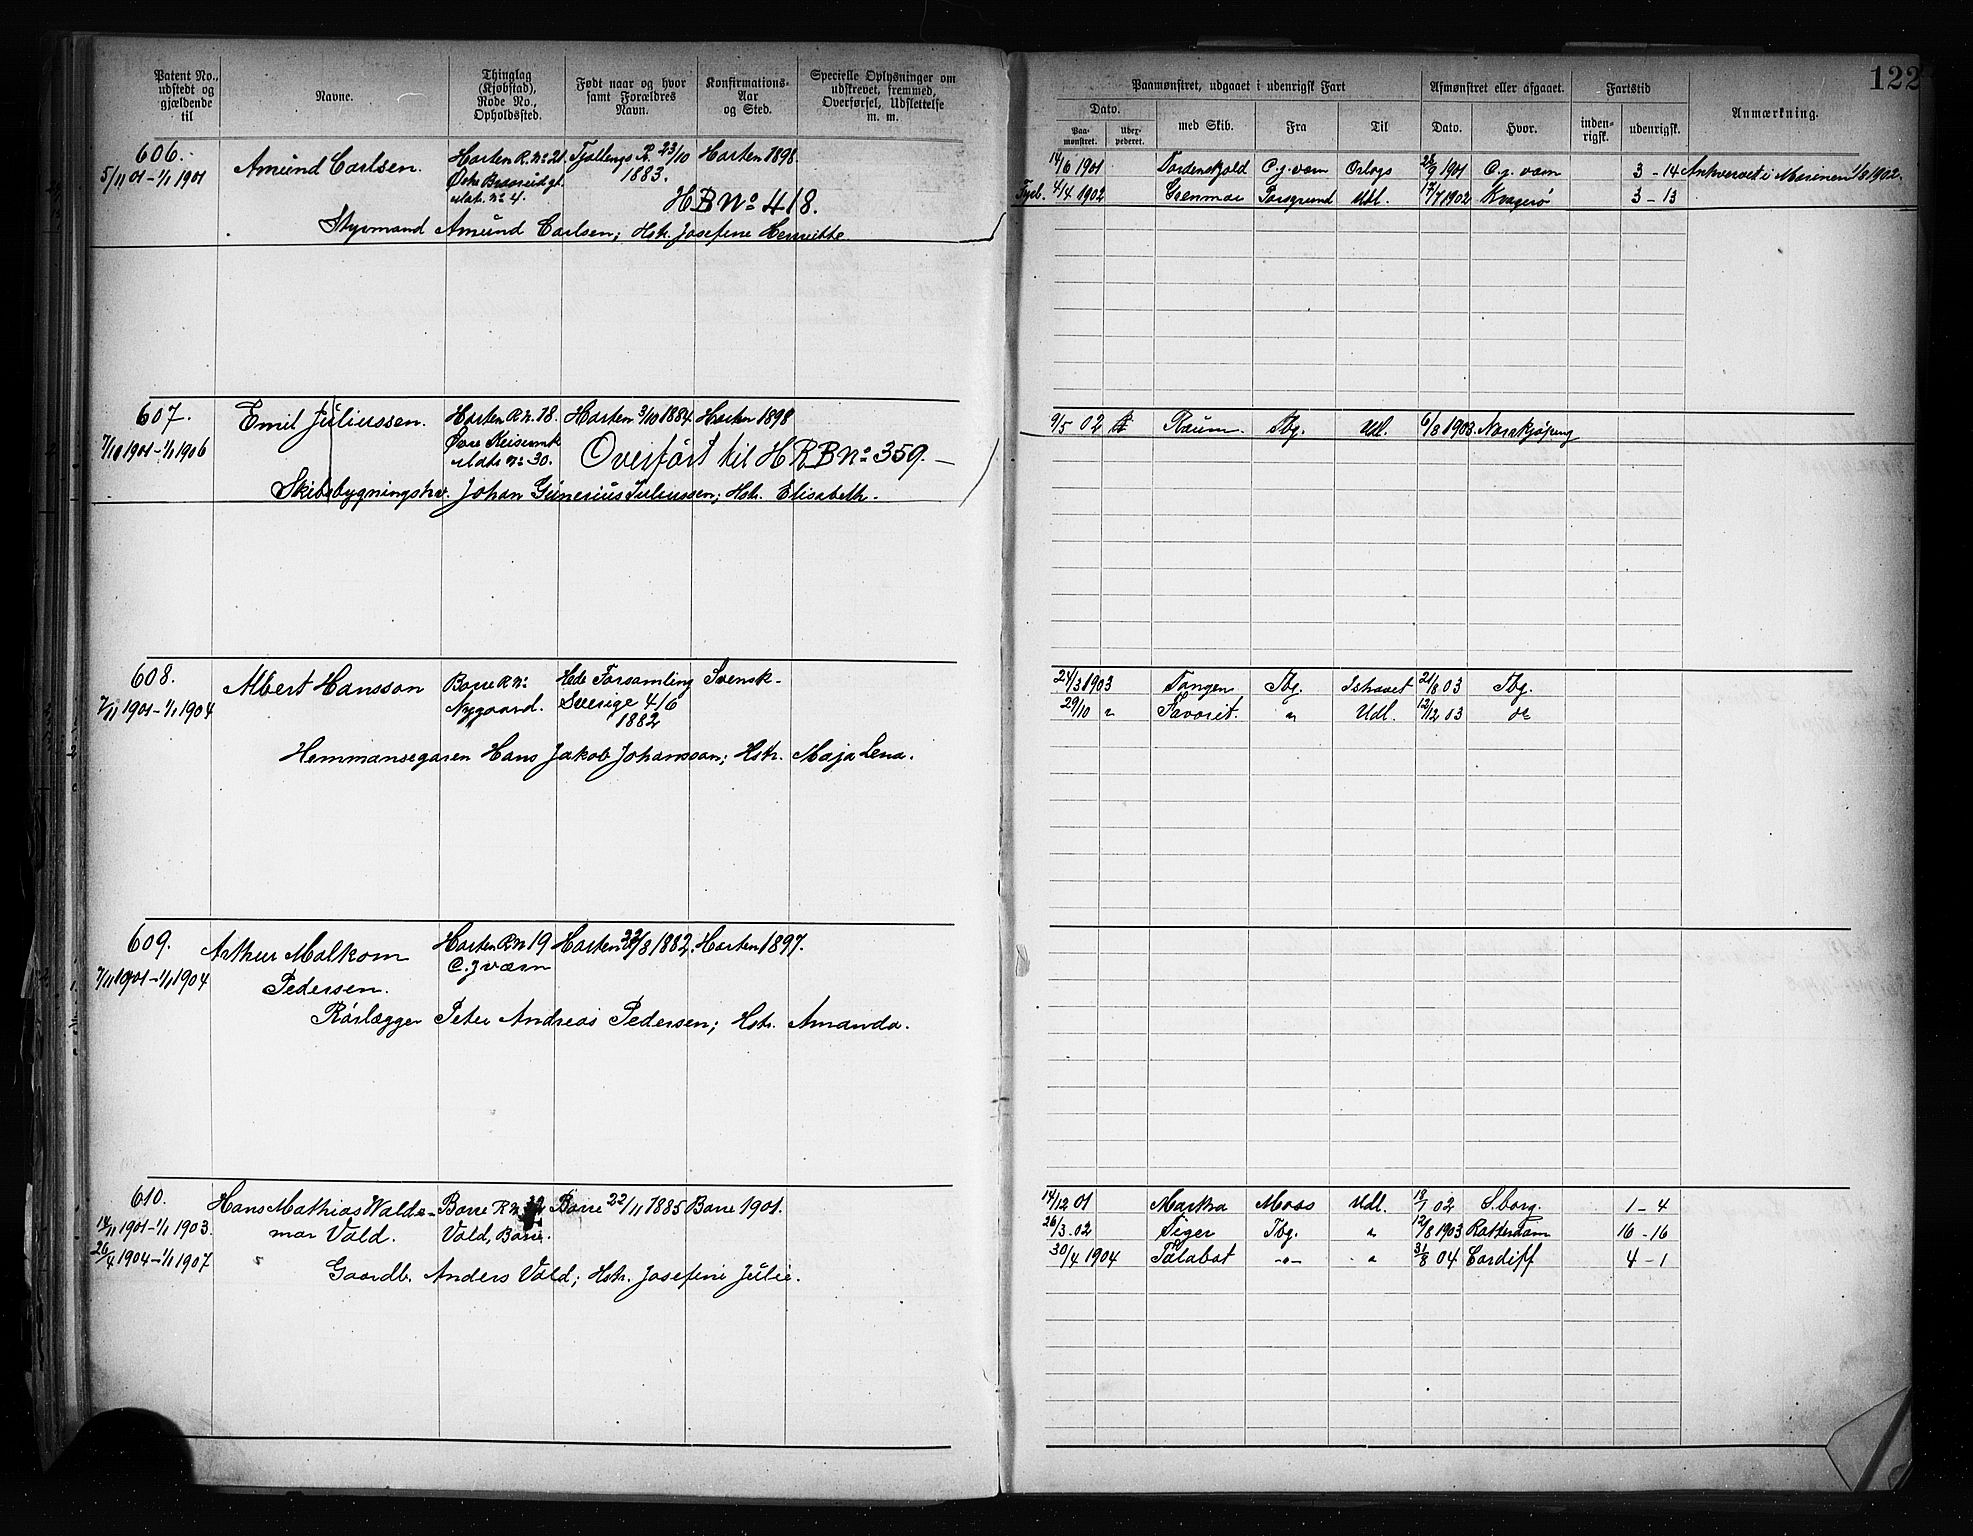 Patent No., udstedt og gjældende til
Navne.
Thinglag (Kjøbstad), Rode No., Opholdssted.
Født naar og hvor samt Forældres Navn.
Konfirmations-Aar og Sted.
Specielle Oplysninger om udskrevet, fremmed, Overførsel, Udslettelse m. m.
Paamønstret, udgaaet i udenrigsk Fart
Afmønstret eller afgaaet.
Fartstid
Anmærkning.
122
Dato.
Paa-mønstret.
Uber-pederet.
med Skib.
Fra
Til
Dato.
Hvor.
inden-rigsk.
udenrigsk.
606.
5/11 01-1/1 1901
Amund Carlsen.
Horten R. No 21.
mat. no 4.
Tjøllings P. 23/10 1883.
Horten 1898.
HB No 418.
Styrmand Amund Carlsen; Hstr. Josefine Henriette.
14/6 1901 Tordenskjold C. j. værn Orlogs 28/9 1901 C. j.værn 3-14 i Marinen 1/8 1902.
4/4 1902 Grenmar Porsgrund Udl. 17/7 1902 Kragerø 3-13
607.
7/10 1901-1/1 1906
Emil Juliussen.
Horten R. N. 18.
Øvre Keisermk
Matr no 30.
Horten 3/10 1884.
Horten 1898
Overført til HRB No 359.
Skibsbygningstøm. Johan Gunerius Juliussen; Hstr. Elisabeth.
9/5 02 Raum. Tbg. Udl. 6/8 1903. Norrkjøping
608.
7/11 1901-1/1 1904
Albert Hansson
Borre R no
Nygaard.
Hede Forsamling Sverige 4/6 1882
Svensk.
Hemmansegaren Hans Jakob Johansson; Hstr. Maja Lena.
24/3 1903 Tangen Tbg. Ishavet 21/8 03 Tbg.
29/10 " Favorit. " Udl. 12/12 03 do
609.
7/11 1901-1/1 1904
Arthur Malkom Pedersen.
Horten R N 19
C. j værn
Horten 22/8 1882.
Horten 1897.
Rørlægger Peter Andreas Pedersen; Hstr. Amanda.
610.
14/11 1901-1/1 1903.
26/4 1904-1/1 1907
Hans Mathias Waldemar Vold.
Borre R N
Vold, Borre.
Borre 22/11 1885
Borre 1901.
Gaardb. Anders Vold; Hstr. Josefine Julie.
14/12 01 Markra Moss Udl. 18/1 02 S.borg. 1-4
26/3.02 Siger Tbg. " 12/8 1903 Rotterdam 16-16
30/4 1904 Talabot -"- " 31/8 04 Cardiff 4-1